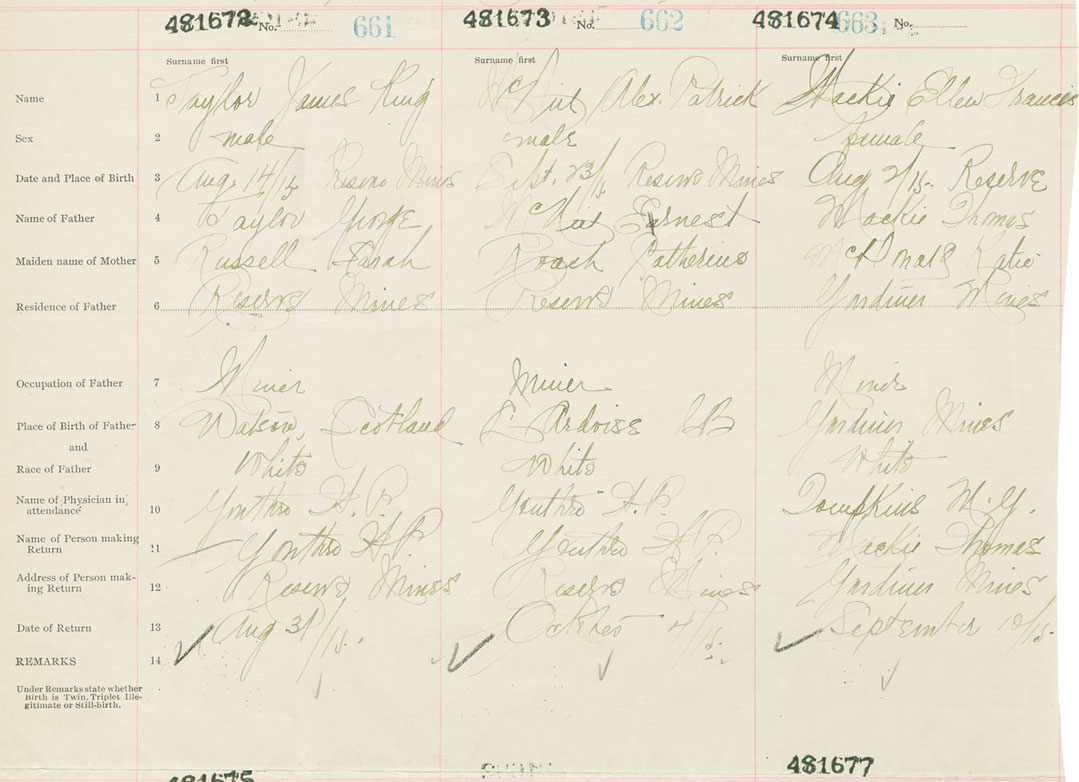 481672 No. 661 481673 No. 662 481674 663 No.
Surname first Surname first Surname first
Name 1 Taylor James King McNut Alex. Patrick Mackie Ellen Francis
Sex 2 male male female
Date and Place of Birth 3 Aug. 14/15 Reserve Mines Sept. 23/15 Reserve Mines Aug 2/15. Reserve
Name of Father 4 Taylor George McNut Earnest Mackie Thomas
Maiden name of Mother 5 Russell Sarah Roach Catherine McDonald Katie
Residence of Father 6 Reserve Mines Reserve Mines Gardiner Mines
Occupation of Father 7 Miner Miner Miner
Place of Birth of Father 8 Watson, Scotland L'Ardoise CB Gardiner Mines
and
Race of Father 9 White White White
Name of Physician in attendance 10 Gouthro H. P. Gouthro H. P. Tompkins M. G.
Name of Person making Return 11 Gouthro H. P. Gouthro H. P. Mackie Thomas
Address of Person mak-
ing Return 12 Reserve Mines Reserve Mines Gardiner Mines
Date of Return 13 Aug 31/15. October 4/15. September 10/15.
REMARKS 14
Under Remarks state whether
Birth is Twin, Triplet, Ille-
gitimate or Still-birth.
481675 481677